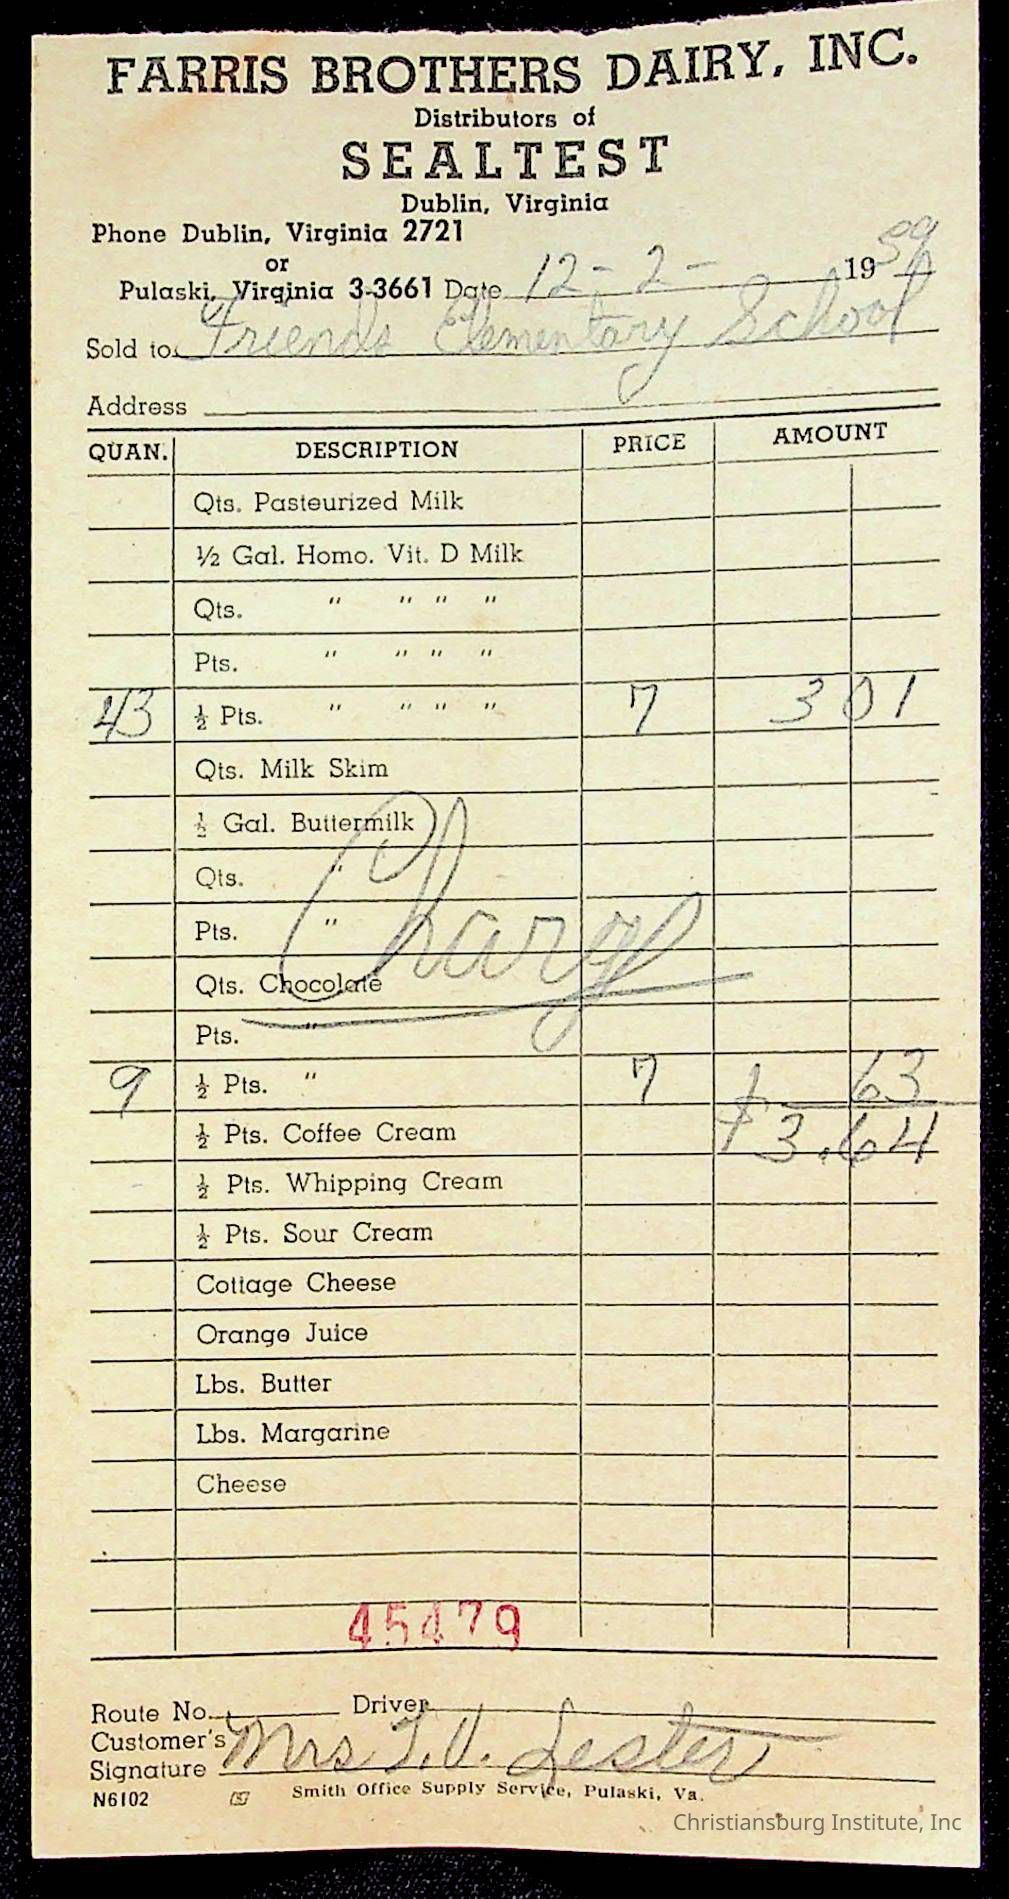 FARRIS BROTHERS DAIRY, INC.
Distributors of
SEALTEST
Dublin, Virginia
Phone Dublin, Virginia 2721
or
Pulaski, Virginia 3-3661 Date 12-2- 1959
Sold to Friends Elementary School
Address
QUAN. DESCRIPTION PRICE AMOUNT
Qts. Pasteurized Milk
½ Gal. Homo. Vit. D Milk
Qts. " " " "
Pts. " " " "
43 ½ Pts. " " " " 7 3 01
Qts. Milk Skim
½ Gal. Buttermilk
Qts. "
Pts. "
Charge
Qts. Chocolate
Pts. "
9 ½ Pts. " 7 63
½ Pts. Coffee Cream $3.64
½ Pts. Whipping Cream
½ Pts. Sour Cream
Cottage Cheese
Orange Juice
Lbs. Butter
Lbs. Margarine
Cheese
45479
Route No. Driver
Customer's
Signature Mrs T.V. Lester
N6102 Smith Office Supply Service, Pulaski, Va.
Christiansburg Institute, Inc